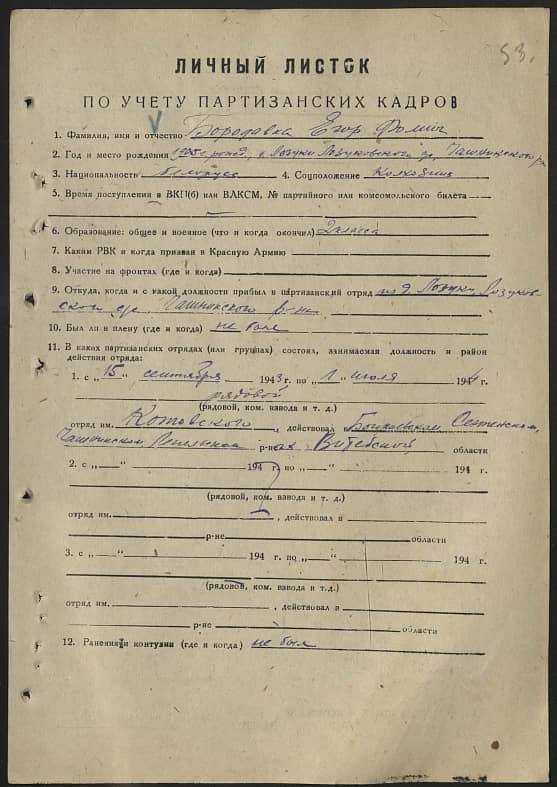 53.
ЛИЧНЫЙ ЛИСТОК
ПО УЧЕТУ ПАРТИЗАНСКИХ КАДРОВ
1. Фамилия, имя и отчество Бородавка Егор Фомич
2. Год и место рождения 1905 г. рожд. д. Лозуки Лозуковского с/с, Чашникского р-
3. Национальность белорус 4. Соцположение Колхозник
5. Время поступления в ВКП(б) или ВЛКСМ, № партийного или комсомольского билета —
6. Образование: общее и военное (что и когда окончил) 2 класса
7. Каким РВК и когда призван в Красную Армию
8. Участие на фронтах (где и когда)
9. Откуда, когда и с какой должности прибыл в партизанский отряд из д. Лозуки Лозуков-
ского с/с, Чашникского р-на
10. Был ли в плену (где и когда) не был
11. В каких партизанских отрядах (или группах) состоял, занимаемая должность и район
действия отряда:
1. с „15" сентября 1943 г. по „1" июля 1944 г.
рядовой
(рядовой, ком. взвода и т. д.)
отряд им. Котовского, действовал в
Чашникском Лепельском р-нах Витебской области
2. с „—" 194 г. по „—" 194 г.
(рядовой, ком. взвода и т. д.)
отряд им. , действовал в
р-не области
3. с „—" 194 г. по „—" 194 г.
(рядовой, ком. взвода и т.д.)
отряд им. , действовал в
р-не области
12. Ранения и контузии (где и когда) не был